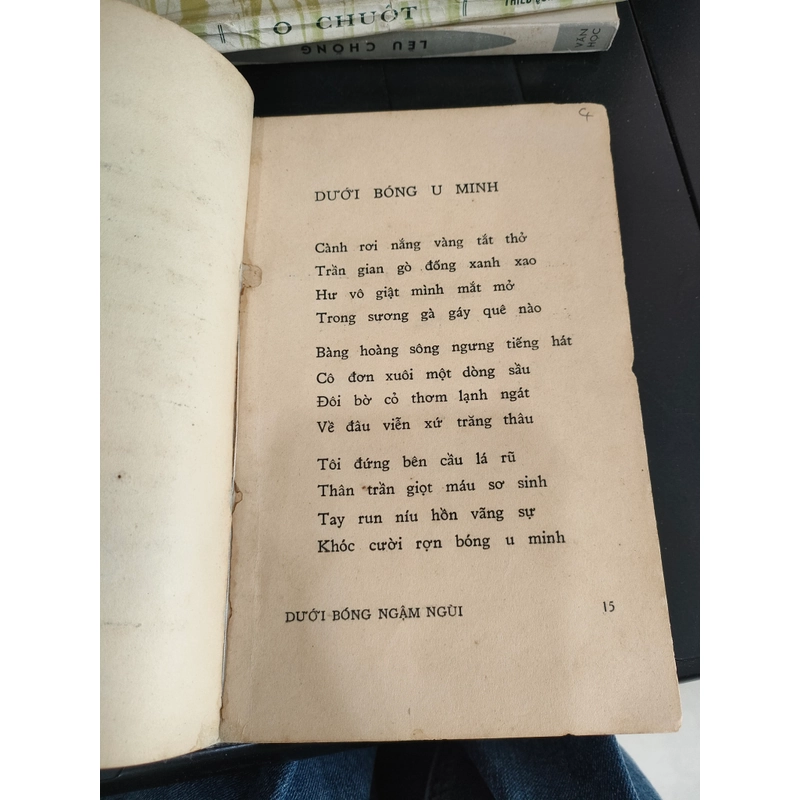 O CHUỘT
LỀU CHÕNG
VĂN HỌC
DƯỚI BÓNG U MINH
Cành rơi nắng vàng tắt thở
Trần gian gò đống xanh xao
Hư vô giật mình mắt mở
Trong sương gà gáy quê nào
Bàng hoàng sông ngưng tiếng hát
Cô đơn xuôi một dòng sầu
Đôi bờ cỏ thơm lạnh ngát
Về đâu viễn xứ trăng thâu
Tôi đứng bên cầu lá rũ
Thân trần giọt máu sơ sinh
Tay run níu hồn vãng sự
Khóc cười rợn bóng u minh
DƯỚI BÓNG NGẬM NGÙI 15